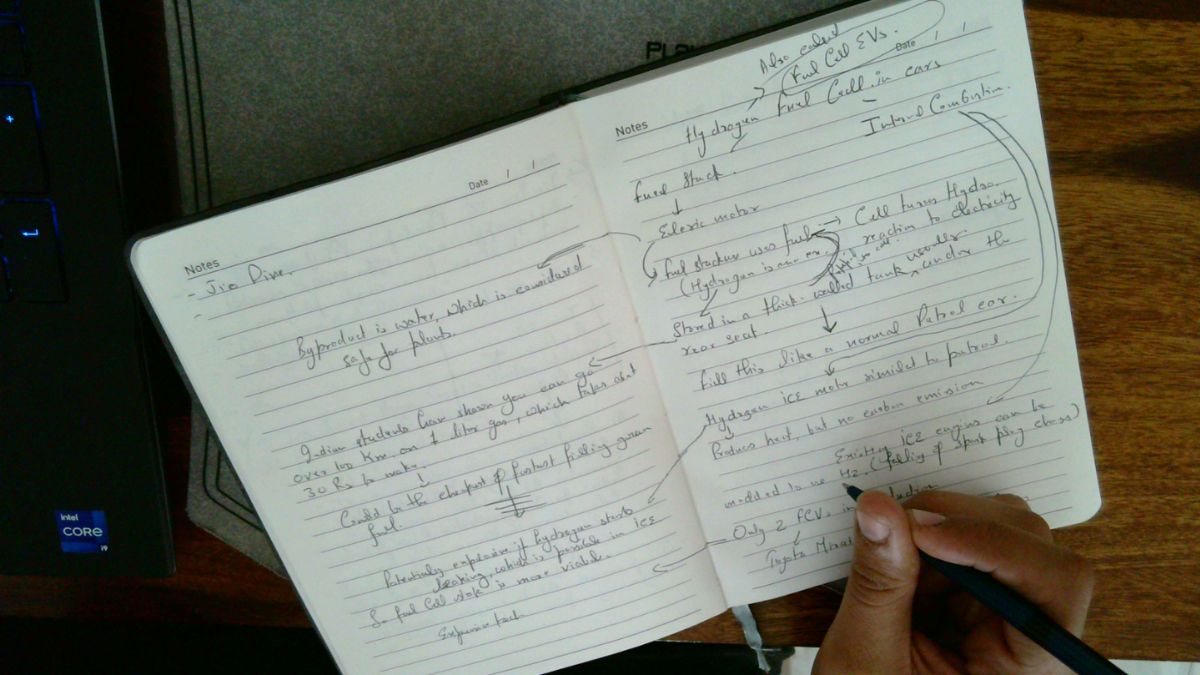 Notes
Date / /
- Jio Dive.
-
Byproduct is water, which is considered
safe for plants.
Indian students have shown you can go
over 100 Km on 1 liter gas, which takes about
30 Rs to make.
Could be the cheapest & fastest filling green
fuel.
Potentially explosive if hydrogen starts
leaking which is possible in ICE
So fuel cell stack is more viable.
Expensive tech
Notes
Date / /
Also called
Fuel Cell EVs.
Hydrogen Fuel Cell in cars
Internal Combustion.
Fuel Stack.
Electric motor
Fuel stack uses fuel → Cell turns Hydro.
(Hydrogen is
reaction to electricity
Stored in a thick walled tank usually under the
rear seat.
Fill this like a normal Patrol car.
Hydrogen ICE motor similar to patrol.
Produces heat, but no carbon emission
Existing ICE engines can be
modded to use H2. (
of spark plug
)
Only 2 FCVs in
Toyota
PLA
intel
CORE
i9